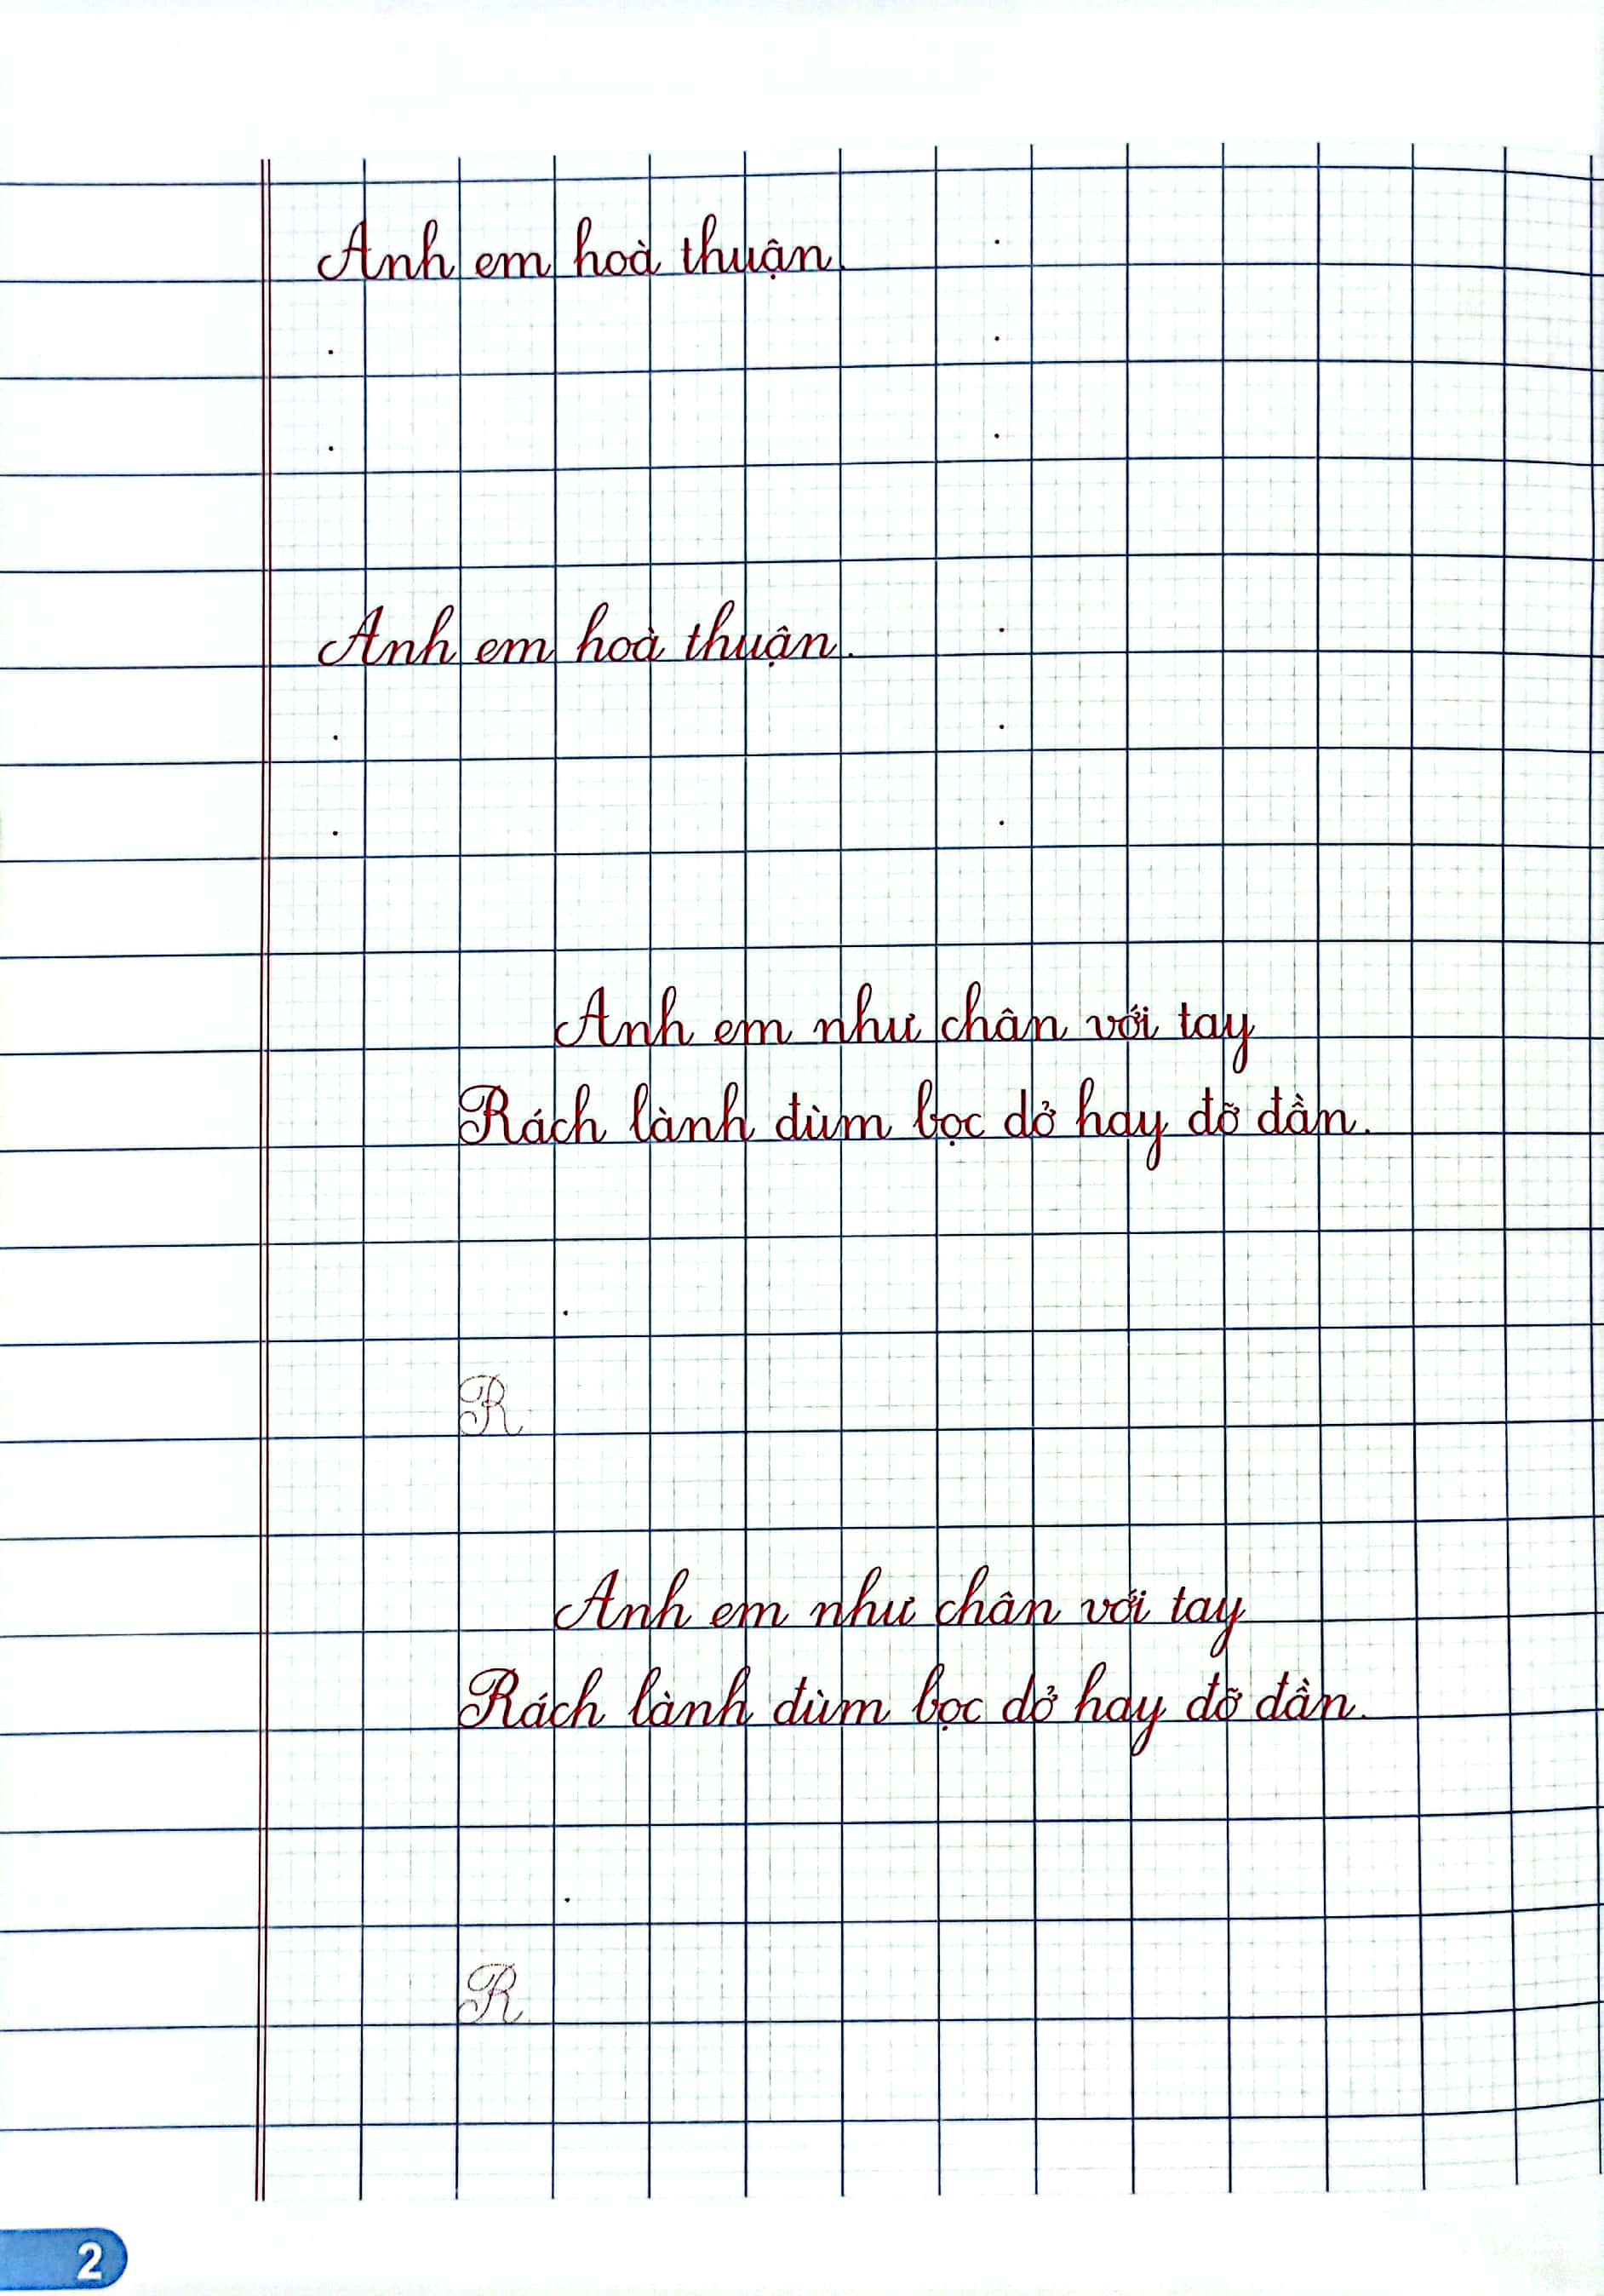 Anh em hoà thuận.
Anh em hoà thuận.
Anh em như chân với tay
Rách lành đùm bọc dở hay đỡ đần.
R
Anh em như chân với tay
Rách lành đùm bọc dở hay đỡ đần.
R
2